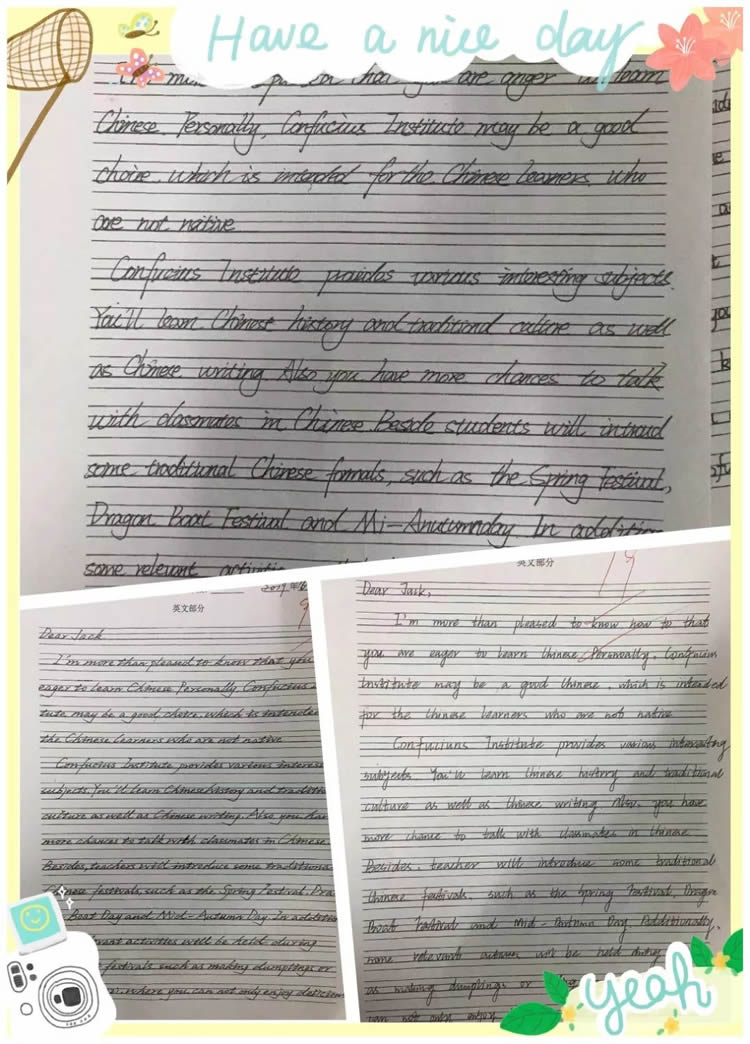 Have a nice day
are anger learn
Chinese. Personally, Confucius Instituto may be a good
choice. which is intended for the Chinese learners who
are not native
Confucius Institute provides various interesting subjects.
You'll learn Chinese history and traditional culture as well
as Chinese writing. Also you have more chances to talk
with classmates in Chinese. Beside students will introud
some traditional Chinese formals, such as the Spring Festival,
Dragon Boat Festival and Mi-Anutumnday. In addition
some relevant activities
2019年
英文部分
Dear Jack
I'm more than pleased to know that you
eager to learn Chinese. Personally. Confucius
tute may be a good choice, which is intende
the Chinese learners who are not native
Confucius Institute provides various interes
subjects. You'll learn Chinese history and tradition
culture as well as Chinese writing. Also you ha
more chances to talk with classmates in Chinese.
Besides, teachers will introduce some traditiona
festivals, such as the Spring Festival. Dra
Boat Day and Mid-Autumn Day. In addition
activities will be held during
festivals such as making dumplings or
where you can not only enjoy deliciou
英文部分
19
Dear Jack,
I'm more than pleased to know how to that
you are eager to learn Chinese. Personally, Confucius
Institute may be a good Chinese, which is intended
for the Chinese learners who are not native
Confuciuns Institute provides various interesting
subjects. You'll learn Chinese history and traditional
culture as well as Chinese writing. Also, you have
more chance to talk with classmates in Chinese.
Besides, teacher will introduce some traditional
Chinese festivals, such as the Spring Festival, Dragon
Boat Festival and Mid-Autumn Day. Additionally,
some relevant will be held during
as making dumplings or
can not only enjoy
yeah